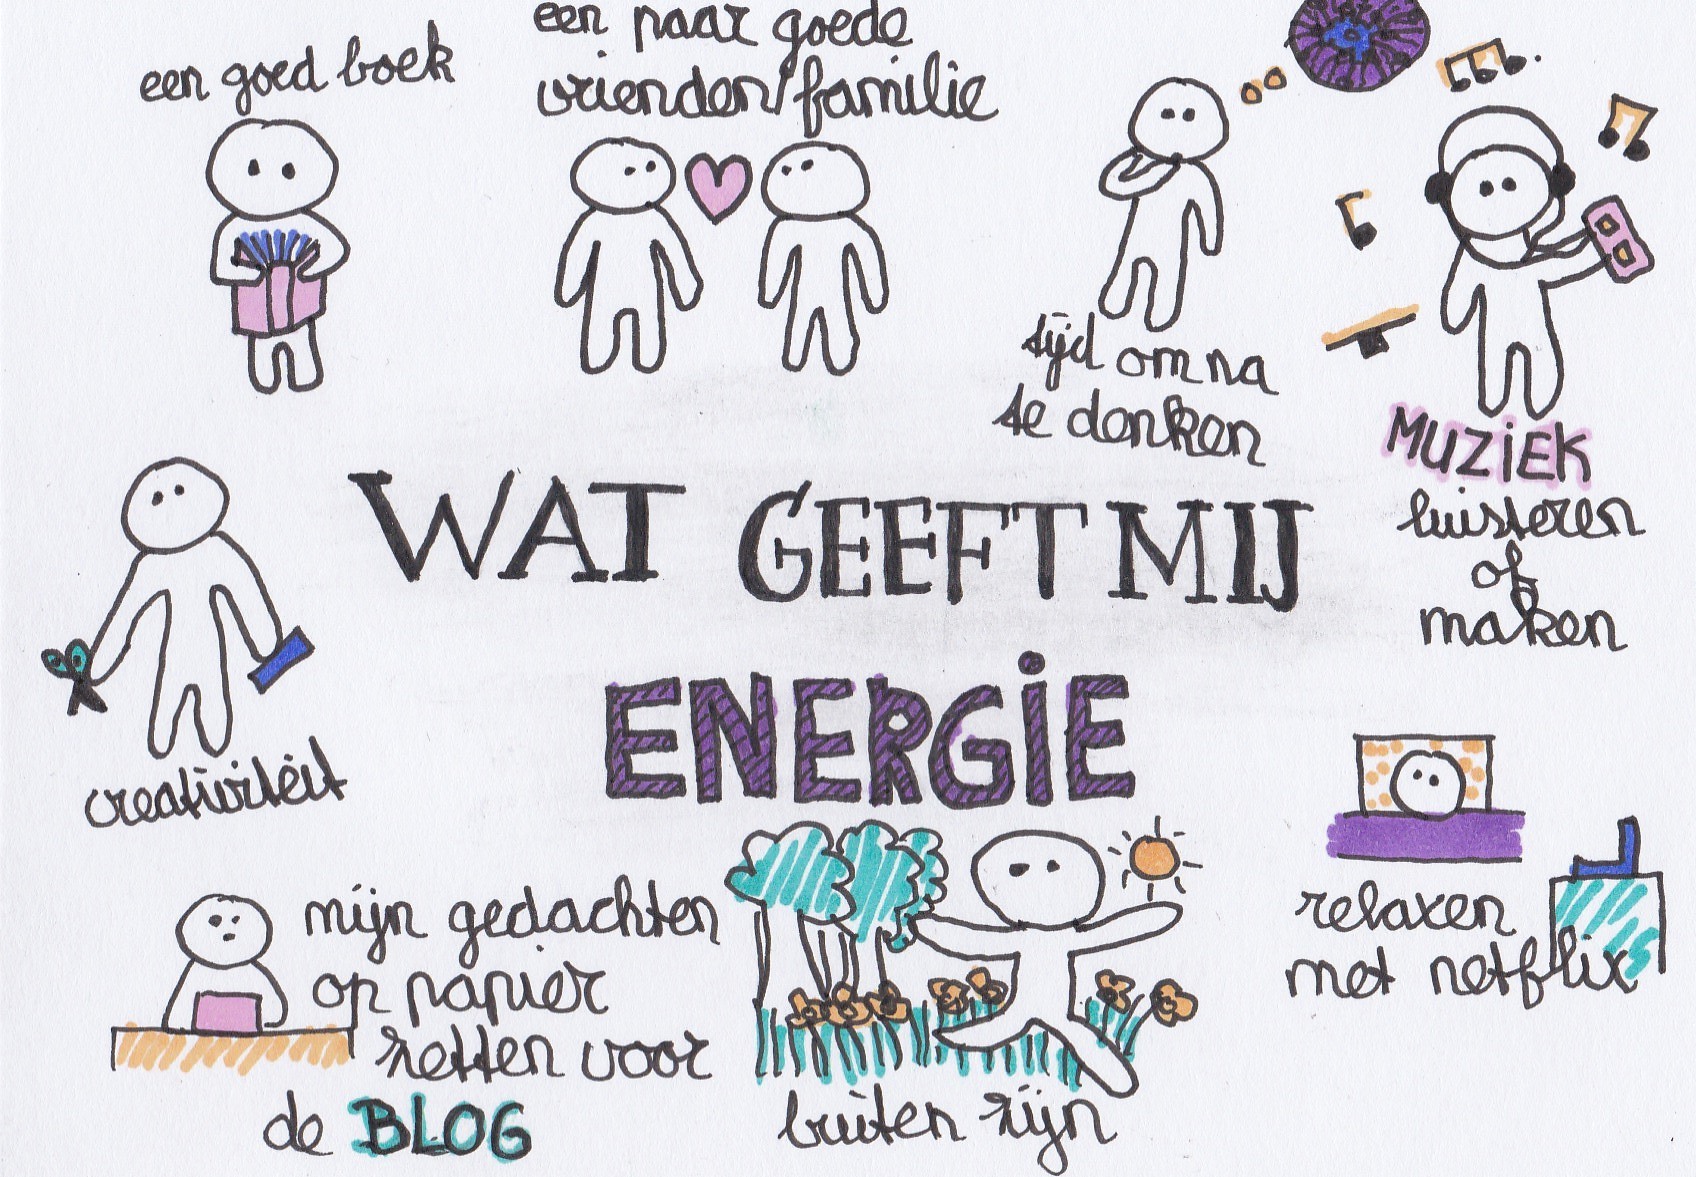 een goed boek
een paar goede
vrienden/familie
tijd om na
te denken
MUZIEK
luisteren
of
maken
WAT GEEFT MIJ
ENERGIE
creativiteit
mijn gedachten
op papier
zetten voor
de BLOG
buiten zijn
relaxen
met netflix